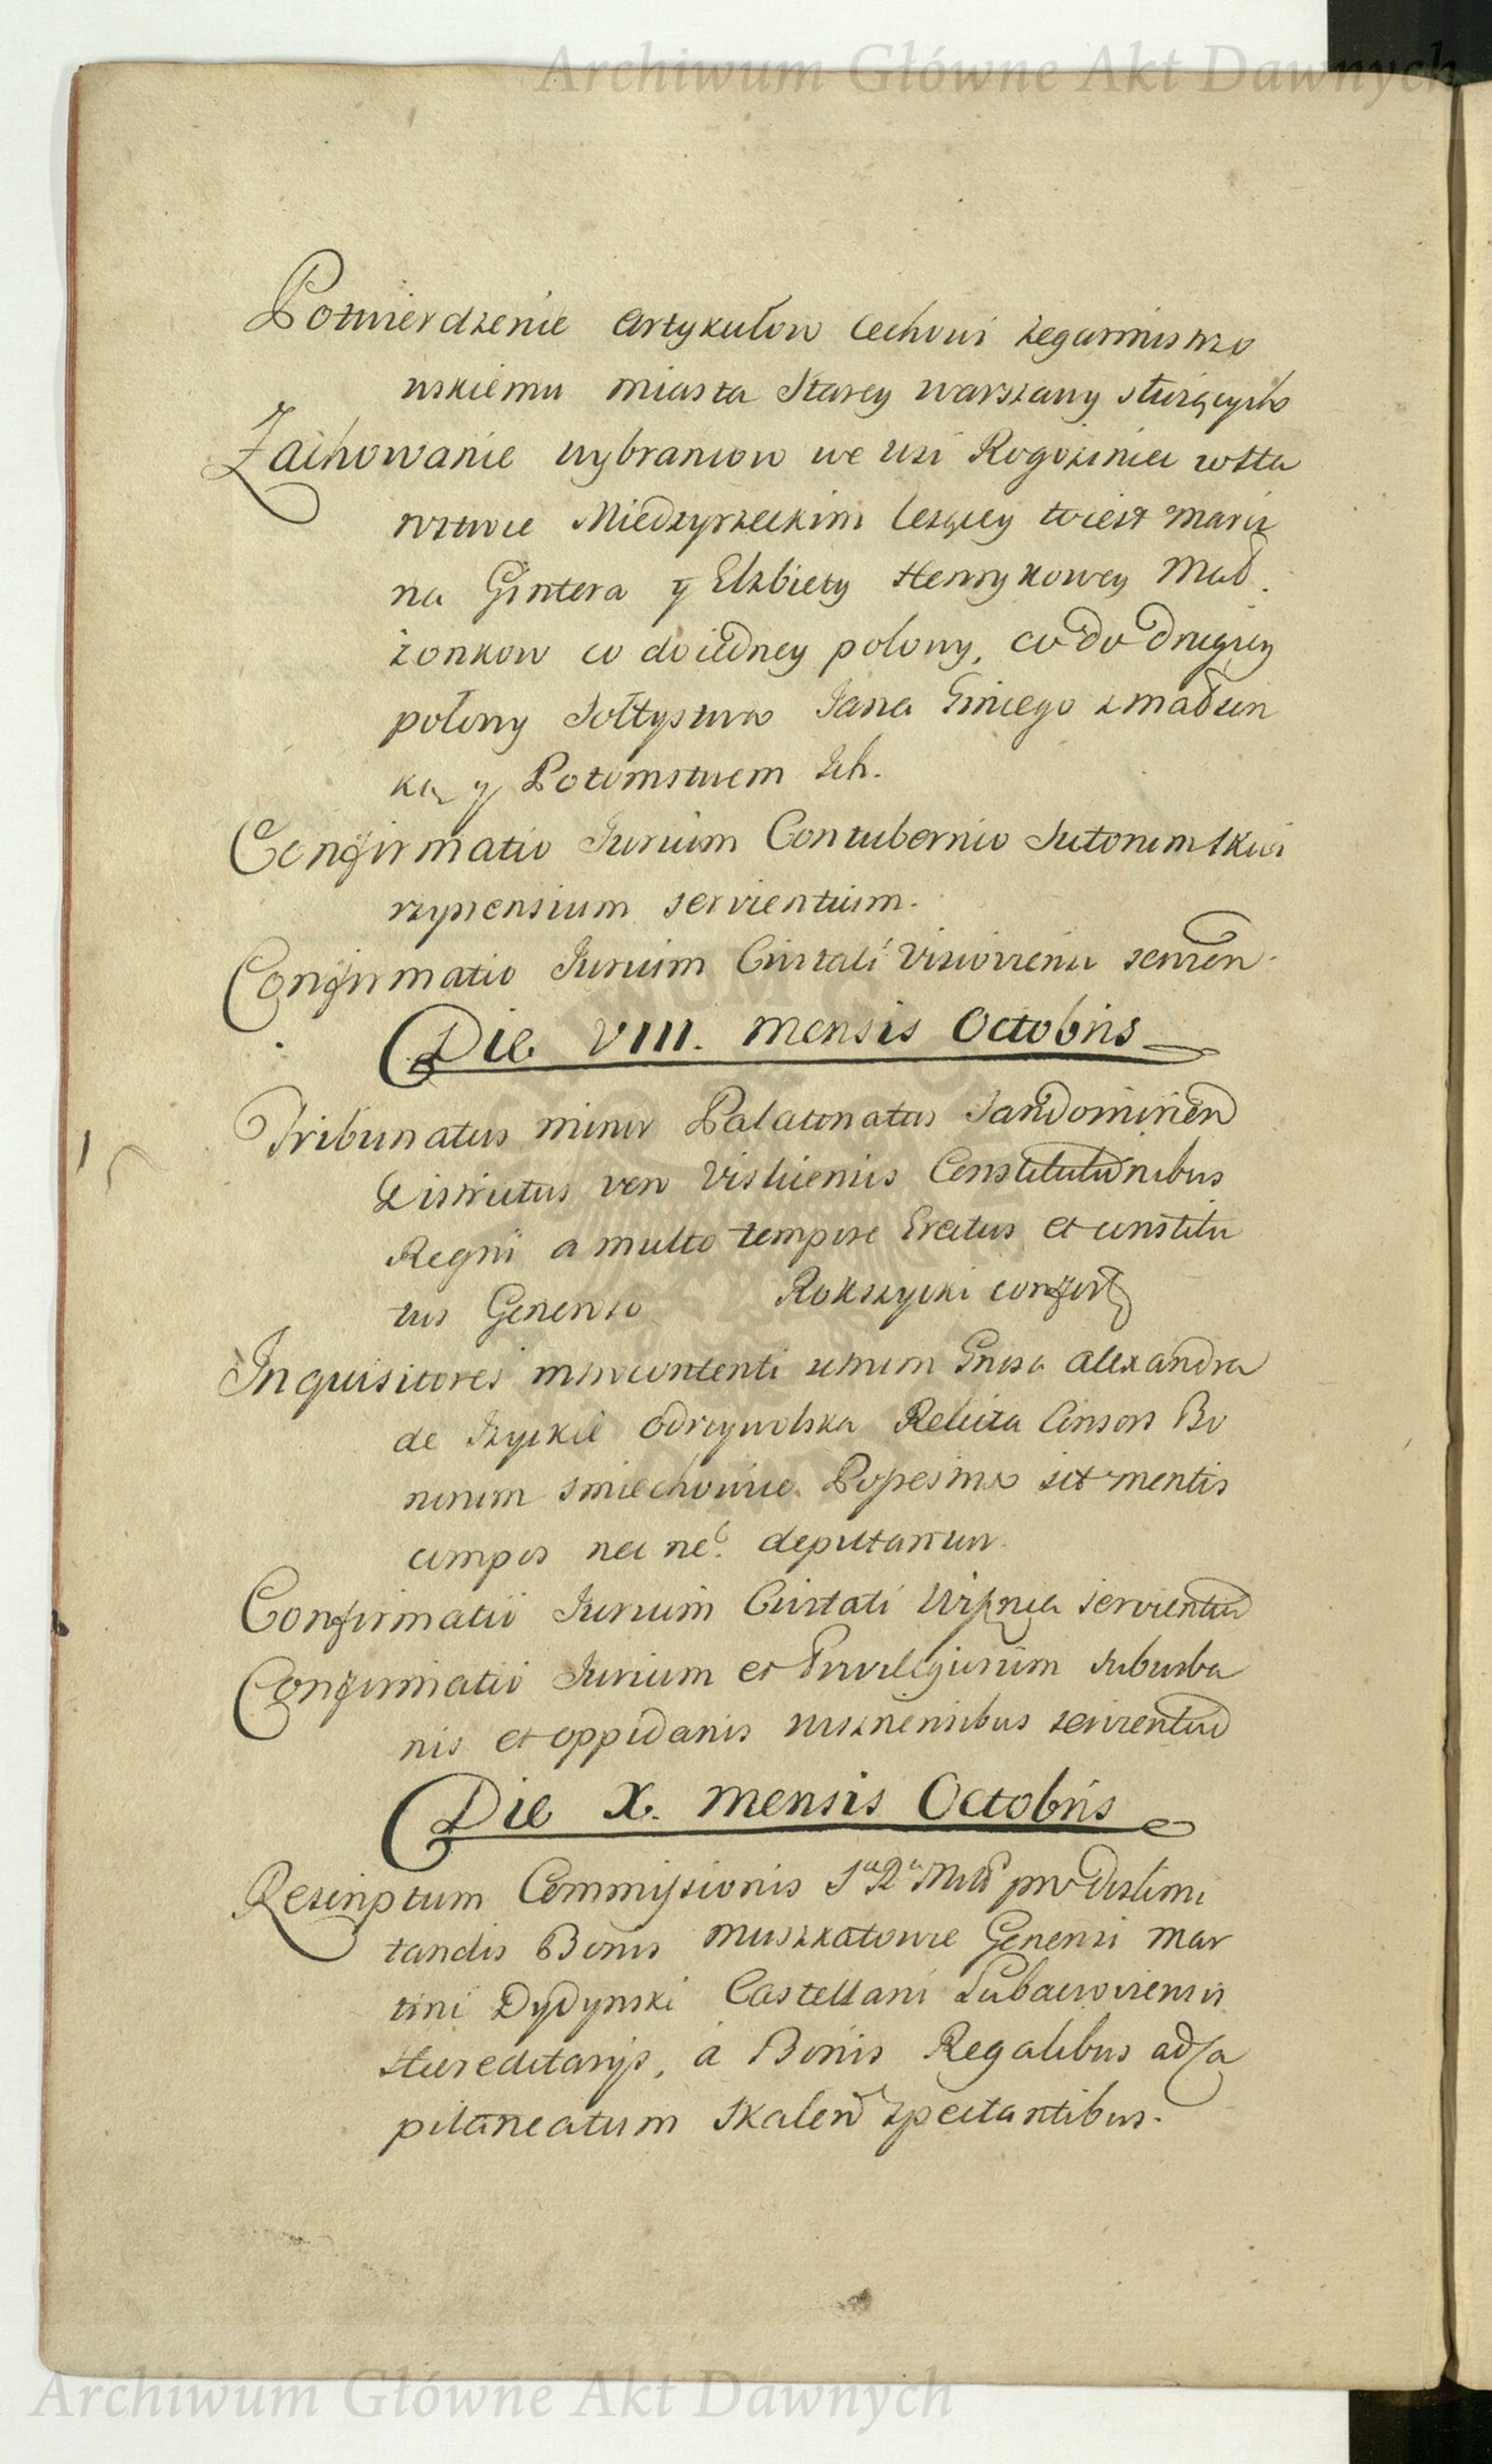 Archiwum Główne Akt Dawnych
Potwierdzenie Artykułow Cechowi Zegarmistrzo
wskiemu miasta Starey Warszawy służących
Zachowanie Wybrancow we Wsi Rogoźnicy wsta
rostwie Miedzyrzeckim leżącey to iest Marci
na Gintera y Elżbiety Henrykowey Małż
żonkow co do iedney połowy, co do drugiey
połowy Sołtystwa Jana Giniego z małżon
ką y Potomstwem Jch.
Confirmatio Jurium Contubernio Sutorum Skwi
rzynensium servientium.
Confirmatio Jurium Civitati servien.
Die VIII. Mensis Octobris
Tribunatus minor Palatinatus Sandomirien
Districtus vero Visliciensis Constitutionibus
Regni a multo tempore Erectus et constitu
tus Generoso Rokszycki confert
Inquisitores utrum Gnosa Alexandra
de Odrzywolska Relicta Consors Bo
norum sit mentis
compos nec ne? deputantur.
Confirmatio Jurium Civitati servientiū
Confirmatio Jurium et Privilegiorum Suburba
nis et oppidanis servientiū
Die X. Mensis Octobris
Rescriptum Commissionis S R Mtis pro Dislimi
tandis Bonis Muszkatowce Generosi Mar
tini Dydynski Castellani Lubaczoviensis
Haereditarijs, á Bonis Regalibus ad Ca
pitaneatum Skalen spectantibus.
Archiwum Główne Akt Dawnych